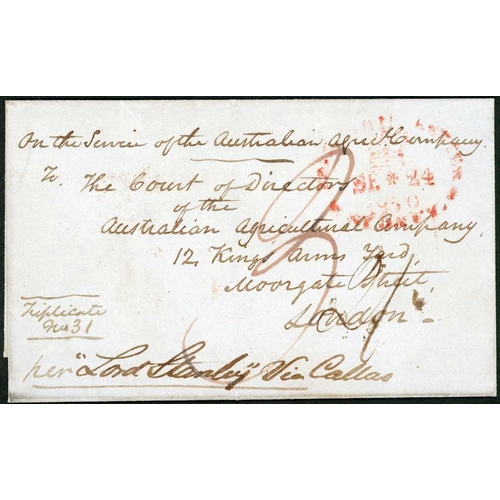 On the Service of the Australian Agricl. Company.
To
The Court of Directors
of the
Australian Agricultural Company,
12, Kings Arms Yard,
Moorgate Street,
London
Triplicate
No 31
per "Lord Stanley" Via Callao
SE * 24
1850
SYDNEY